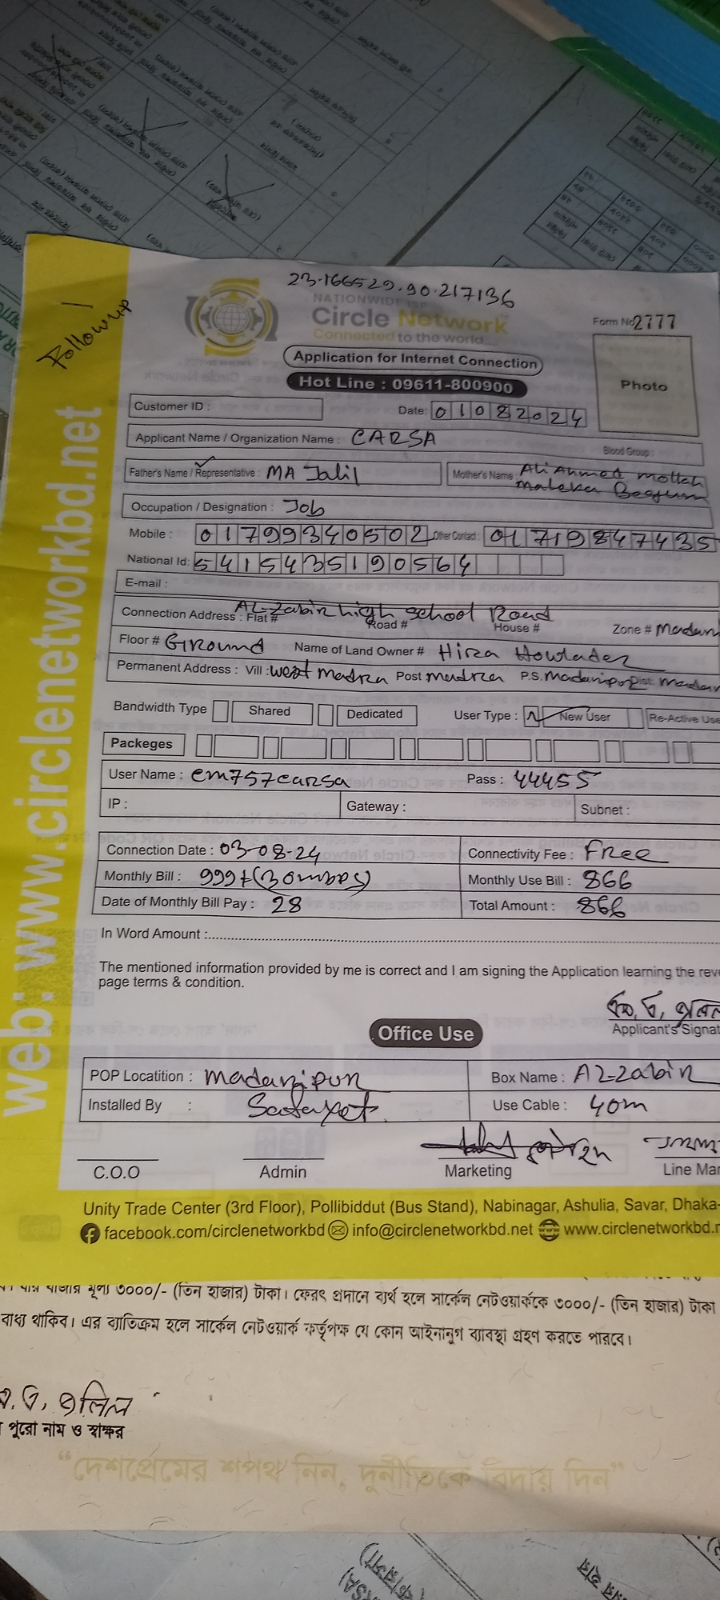 23.166529.90.217136
Followup
NATIONWIDE ISP
Circle Network
Connected to the world
Form No 2777
Application for Internet Connection
Hot Line : 09611-800900
Photo
Customer ID :
Date: 01082024
Applicant Name / Organization Name : CARSA
Blood Group :
Father's Name / Representative : MA Jalil
Mother's Name Ali Ahmed Mollah
Maleka Beegum
Occupation / Designation : Job
Mobile : 01799340502 Other Contact : 01719847435
National Id: 5415435190564
E-mail :
Connection Address : Flat # AL-Zabir high school Road Road # House # Zone #
Floor # Ground Name of Land Owner # Hira Howlader
Permanent Address : Vill : west madra Post madra P.S. Madaripur
Bandwidth Type Shared Dedicated User Type : New User Re-Active
Packeges
User Name : cm757carsa Pass : 44455
IP : Gateway : Subnet :
Connection Date : 03-08-24 Connectivity Fee : Free
Monthly Bill : 999 Monthly Use Bill : 866
Date of Monthly Bill Pay : 28 Total Amount : 866
In Word Amount :
The mentioned information provided by me is correct and I am signing the Application learning the
page terms & condition.
Applicant's
Office Use
POP Locatition : Madaripur Box Name : AL-Zabir
Installed By : Use Cable : 40m
C.O.O Admin Marketing Line
Unity Trade Center (3rd Floor), Pollibiddut (Bus Stand), Nabinagar, Ashulia, Savar, Dhaka-
facebook.com/circlenetworkbd info@circlenetworkbd.net www.circlenetworkbd.
web: www.circlenetworkbd.net
বাজার মূল্য ৩০০০/- (তিন হাজার) টাকা। ফেরৎ প্রদানে ব্যর্থ হলে সার্কেল নেটওয়ার্ককে ৩০০০/- (তিন হাজার) টাকা
বাধ্য থাকিব। এর ব্যতিক্রম হলে সার্কেল নেটওয়ার্ক কর্তৃপক্ষ যে কোন আইনানুগ ব্যাবস্থা গ্রহণ করতে পারবে।
পুরো নাম ও স্বাক্ষর
“দেশপ্রেমের শপথ নিন, দুর্নীতিকে বিদায় দিন”